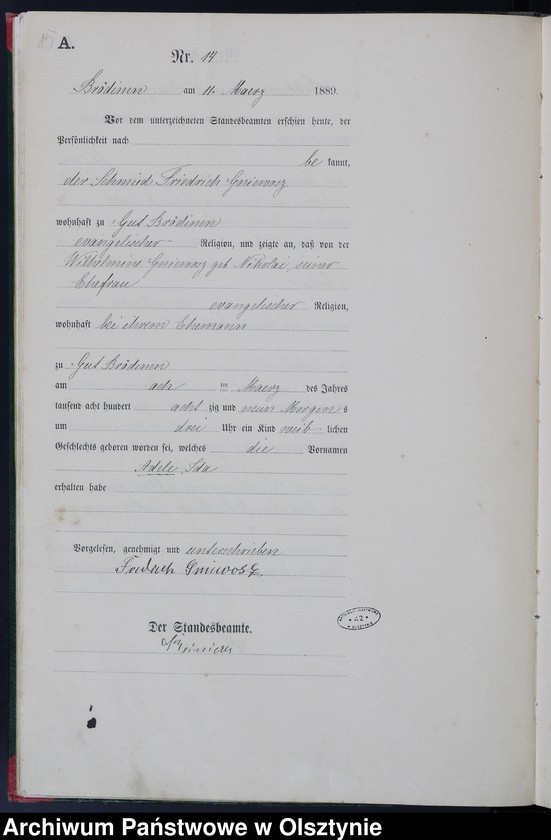 15 A.
Nr. 14
Brödinen am 11. Maerz 1889.
Vor dem unterzeichneten Standesbeamten erschien heute, der
Persönlichkeit nach
be kannt,
der Schmied Friedrich Gniewosz
wohnhaft zu Gut Brödinen
evangelischer Religion, und zeigte an, daß von der
Wilhelmine Gniewosz geb Nikolai, seiner
Ehefrau
evangelischer Religion,
wohnhaft bei ihrem Ehemann
zu Gut Brödinen
am ach ten Maerz des Jahres
tausend acht hundert acht zig und neun Morgen s
um drei Uhr ein Kind weib lichen
Geschlechts geboren worden sei, welches die Vornamen
Adele, Ida
erhalten habe
Vorgelesen, genehmigt und unterschrieben
Friedrich Gniewosz
Der Standesbeamte.
Archiwum Państwowe w Olsztynie